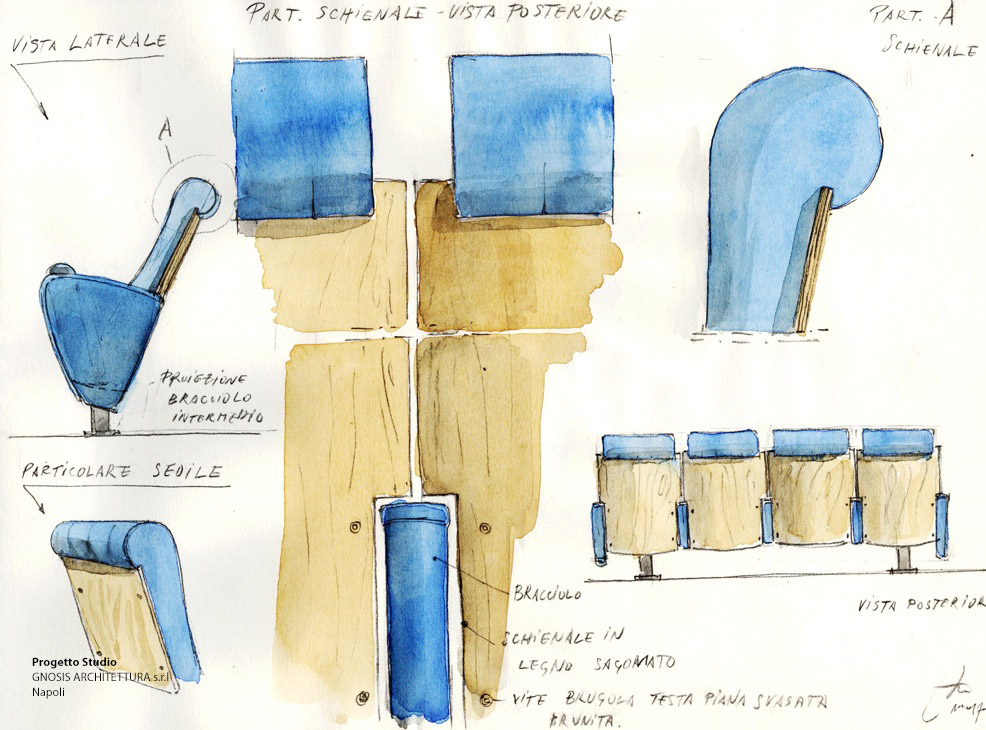 PART. SCHIENALE - VISTA POSTERIORE
PART. A
SCHIENALE
VISTA LATERALE
A
PROIEZIONE
BRACCIOLO
INTERMEDIO
PARTICOLARE SEDILE
BRACCIOLO
SCHIENALE IN
LEGNO SAGOMATO
VITE BRUGOLA TESTA PIANA SVASATA
BRUNITA.
VISTA POSTERIOR
Progetto Studio
GNOSIS ARCHITETTURA s.r.l
Napoli